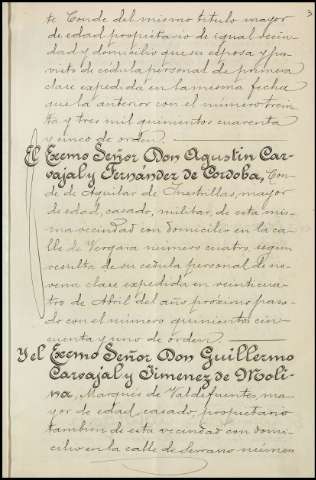 3
te Conde del mismo titulo mayor
de edad propietario de igual vecin-
dad y domicilio que su esposa y pro-
visto de cédula personal de primera
clase expedida en la misma fecha
que la anterior con el número trein-
ta y tres mil quinientos cuarenta
y cinco de orden.
El Excmo Señor Don Agustin Car-
vajal y Fernández de Córdoba, Con-
de de Aguilar de Inestrillas, mayor
de edad, casado, militar, de esta mis-
ma vecindad con domicilio en la ca-
lle de Vergara número cuatro, según
resulta de su cédula personal de no-
vena clase expedida en veinticua-
tro de Abril del año próximo pasa-
do con el número quinientos cin-
cuenta y uno de orden.
Y el Excmo Señor Don Guillermo
Carvajal y Jimenez de Moli-
na, Marqués de Valdefuentes, ma-
yor de edad, casado, propietario
también de esta vecindad con domi-
cilio en la calle de Serrano número